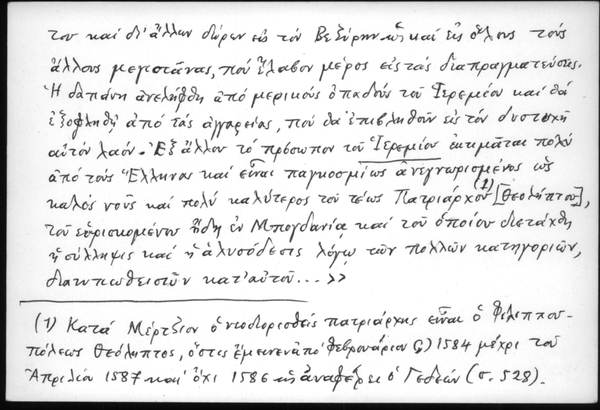 του καὶ δι' ἄλλων δώρων εἰς τὸν Βεζύρην ὡς καὶ εἰς ὅλους τοὺς
ἄλλους μεγιστᾶνας, ποὺ ἔλαβον μέρος εἰς τὰς διαπραγματεύσεις.
Ἡ δαπάνη ἀνελήφθη ἀπὸ μερικοὺς ὀπαδοὺς τοῦ Ἱερεμίου καὶ θὰ
ἐξοφληθῇ ἀπὸ τὰς ἀγγαρείας, ποὺ θὰ ἐπιβληθοῦν εἰς τὸν δυστυχῆ
αὐτὸν λαόν. Ἐξ ἄλλου τὸ πρόσωπον τοῦ Ἱερεμίου ἐκτιμᾶται πολὺ
ἀπὸ τοὺς Ἕλληνας καὶ εἶναι παγκοσμίως ἀνεγνωρισμένος ὡς
καλὸς νοῦς καὶ πολὺ καλύτερος τοῦ τέως Πατριάρχου (1) [Θεολήπτου],
τοῦ εὑρισκομένου ἤδη ἐν Μπογδανίᾳ καὶ τοῦ ὁποίου διετάχθη
ἡ σύλληψις καὶ ἡ ἁλυσόδεσις λόγῳ τῶν πολλῶν κατηγοριῶν,
διατυπωθεισῶν κατ' αὐτοῦ... >>
(1) Κατὰ Μέρτζιον ὁ νεοδιορισθεὶς πατριάρχης εἶναι ὁ Φιλιππου-
πόλεως Θεόληπτος, ὅστις ἔμεινεν ἀπὸ Φεβρουάριον 1584 μέχρι τοῦ
Ἀπριλίου 1587 καὶ ὄχι 1586 ὡς ἀναφέρει ὁ Γεδεὼν (σ. 528).